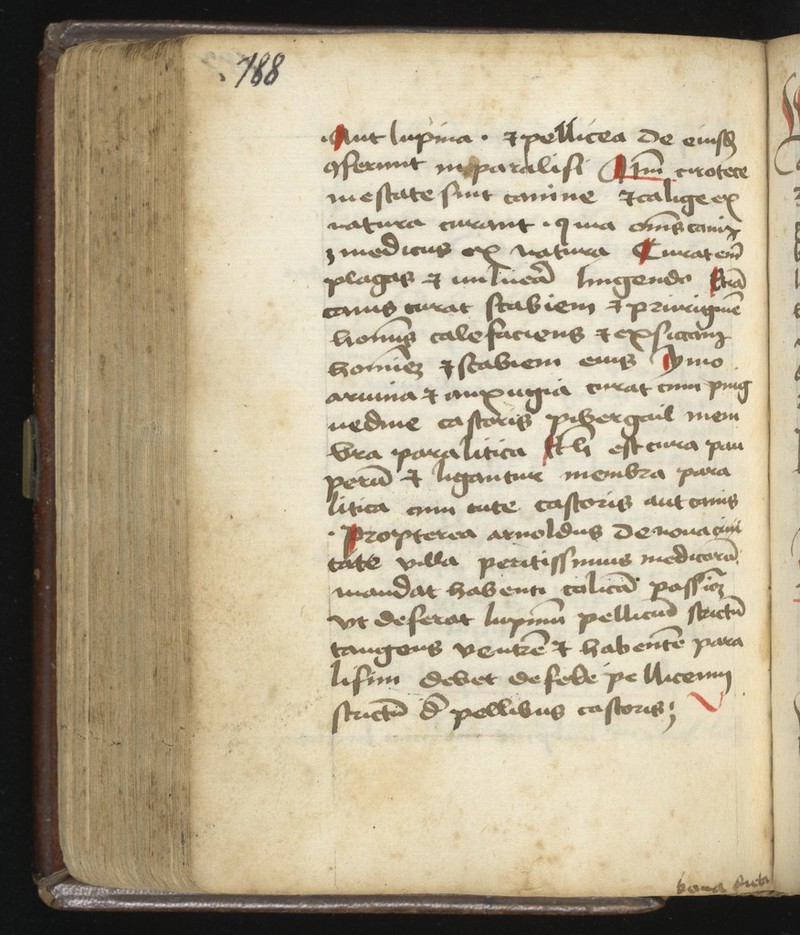 188
Aut lupina · et pellicea de eiusdem
conferunt in paralisi Item cirotece
in estate sint canine et calige ex
natura curant · quia omnis canis
medicus ex natura Curat enim
plagas et vulnera lingendo
canis curat scabiem et
hominis calefaciens et exsiccans
hominem et scabiem eius Ymo
arvina et auxugia curat cum ping
uedine castoris mem
bra paralitica est cura pau
perum et ligantur membra para
litica cum cute castoris aut canis
· Propterea arnoldus de noua ciui
tate villa peritissimus medicorum
mandat habenti colicam passionem
vt deferat lupinum pellicium strictum
tangens ventrem et habentem para
lisim debet deferre pellicium
strictum de pellibus castoris
bona